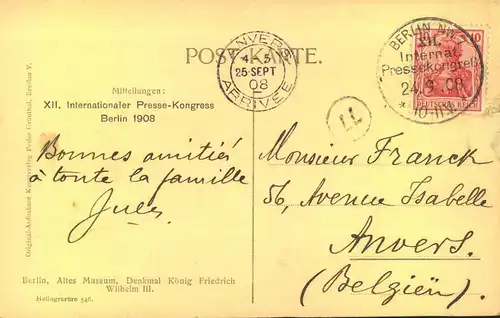 POSTKARTE.
ANVERS
4-5
25 SEPT
08
F
ARRIVÉE
BERLIN NW
XII.
Internat.
Pressekongreß
24.9.08
*10-11
10
DEUTSCHES REICH
11
Mitteilungen:
XII. Internationaler Presse-Kongress
Berlin 1908
Bonnes amitiés
à toute la famille
Jules
Monsieur Franck
56, Avenue Isabelle
Anvers.
(Belgiën).
Berlin, Altes Museum, Denkmal König Friedrich
Wilhelm III.
Heliogravüre 546.
Original-Aufnahme Kunstverlag Fedor Grunthal, Breslau V.